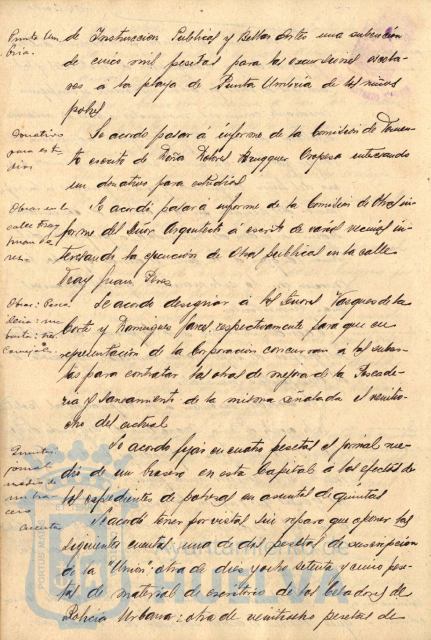 Punta Um-
bría.
de Instruccion Publica y Bellas Artes una subvención
de cinco mil pesetas para las excursiones escola-
res a la playa de Punta Umbria de los niños
pobres
Donativo
para es-
Se acordo pasar á informe de la Comision de Fomen-
to escrito de Doña Dolores Oropesa interesando
un donativo para estudios
Obras en la
calle Fray
Juan Pé-
rez
Se acordó pasar a informe de la Comision de Obras in-
forme del Señor Arquitecto á escrito de varios vecinos in-
teresando la ejecución de obras publicas en la calle
Fray Juan Perez
Obras: Pesca
dería:
Concejales
Se acordo designar á los Señores Vazquez de la
Corte y Dominguez respectivamente para que en
representación de la Corporación concurran á las subas-
tas para contratar las obras de mejora de la Pescade-
ria y Saneamiento de la misma señalada el veintio-
cho del actual
Quintas
jornal
medio de
un bra-
cero
Se acordo fijar en cuatro pesetas el jornal me-
dio de un bracero en esta Capital á los efectos de
los expedientes de pobreza en asuntos de quintas
Cuentas
Se acordó tener por vistas sin reparo que oponer las
siguientes cuentas una de dos pesetas de suscripcion
á la "Union": otra de diez y ocho setenta y cinco pese-
tas de material de escritorio de los Celadores de
Policia Urbana: otra de veintiocho pesetas de
Ayuntamiento de
HUELVA